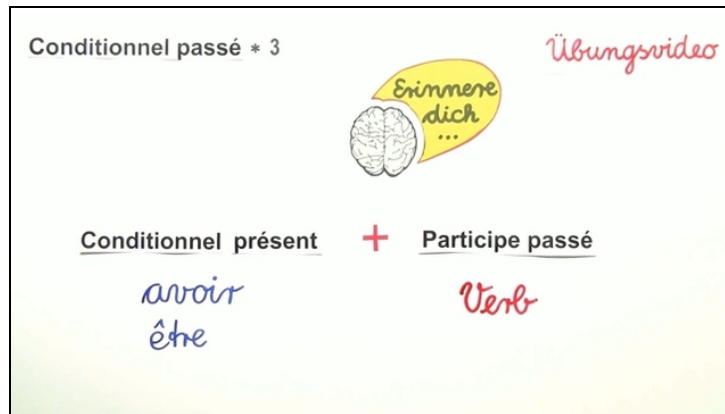 Conditionnel passé * 3
Übungsvideo
Erinnere
dich
...
Conditionnel présent + Participe passé
avoir
être
Verb